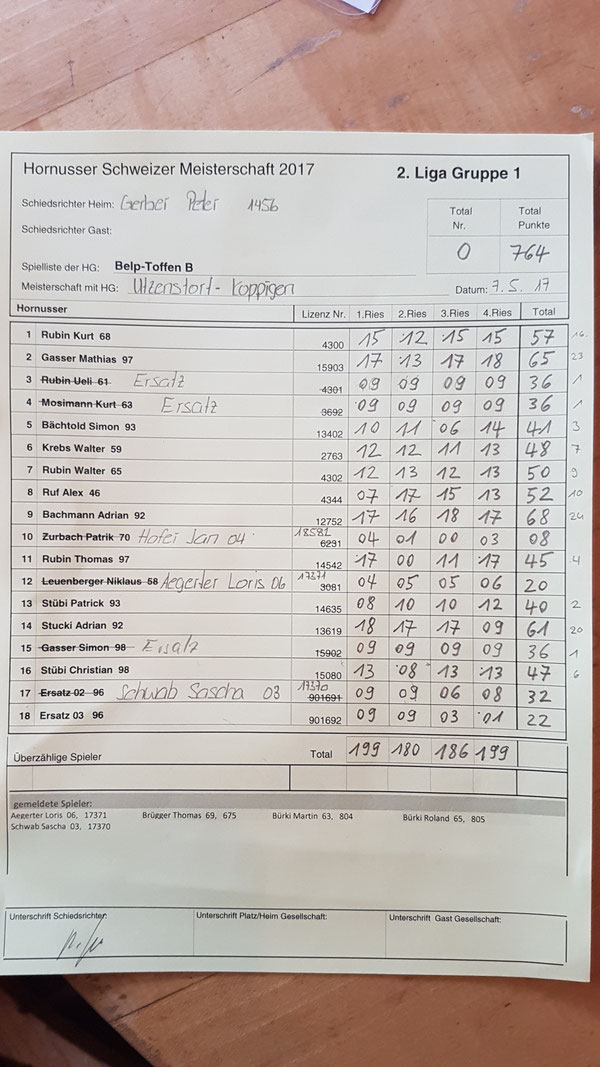 Hornusser Schweizer Meisterschaft 2017 2. Liga Gruppe 1
Schiedsrichter Heim: Gerber Peter 1456
Schiedsrichter Gast:
Total Nr. Total Punkte
0 764
Spielliste der HG: Belp-Toffen B
Meisterschaft mit HG: Utzenstorf-Koppigen Datum: 7.5.17
Hornusser Lizenz Nr. 1.Ries 2.Ries 3.Ries 4.Ries Total
1 Rubin Kurt 68 4300 15 12 15 15 57 16
2 Gasser Mathias 97 15903 17 13 17 18 65 23
3 Rubin Ueli 61 Ersatz 4301 09 09 09 09 36 1
4 Mosimann Kurt 63 Ersatz 3692 09 09 09 09 36 1
5 Bächtold Simon 93 13402 10 11 06 14 41 3
6 Krebs Walter 59 2763 12 12 11 13 48 7
7 Rubin Walter 65 4302 12 13 12 13 50 9
8 Ruf Alex 46 4344 07 17 15 13 52 10
9 Bachmann Adrian 92 12752 17 16 18 17 68 24
10 Zurbach Patrik 70 Hofer Jan 04 18582 6231 04 01 00 03 08
11 Rubin Thomas 97 14542 17 00 11 17 45 4
12 Leuenberger Niklaus 58 Aegerter Loris 06 17371 3081 04 05 05 06 20
13 Stübi Patrick 93 14635 08 10 10 12 40 2
14 Stucki Adrian 92 13619 18 17 17 09 61 20
15 Gasser Simon 98 Ersatz 15902 09 09 09 09 36 1
16 Stübi Christian 98 15080 13 08 13 13 47 6
17 Ersatz 02 96 Schwab Sascha 03 17370 901691 09 09 06 08 32
18 Ersatz 03 96 901692 09 09 03 01 22
Überzählige Spieler Total 199 180 186 199
gemeldete Spieler:
Aegerter Loris 06, 17371 Brügger Thomas 69, 675 Bürki Martin 63, 804 Bürki Roland 65, 805
Schwab Sascha 03, 17370
Unterschrift Schiedsrichter: Unterschrift Platz/Heim Gesellschaft: Unterschrift Gast Gesellschaft: